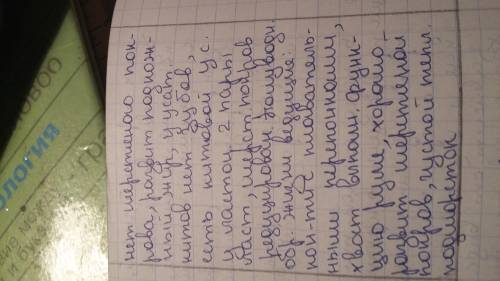 нет шерстеного пок-
рова, развит подкож-
ный жир, у усат.
китов нет зубов,
есть китовый ус.
у ластон 2 пары
ласт, шерст. покров
редуцирован. полуводн.
обр. жизни ведущие:
кон-ти с плаватель-
ными перепонками,
хвост выполн. функ-
цию руля, хорошо
развит шерстеной
покров, густой тепл.
подшерсток
ология